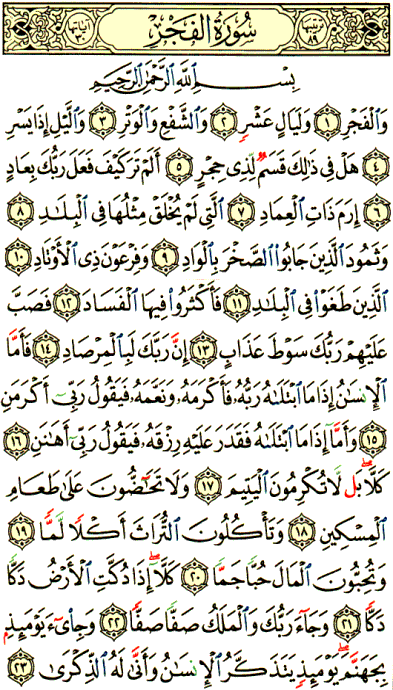 ترتيبها ٨٩ سُورَةُ الفَجْرِ آياتها ٣٠
بِسْمِ اللَّهِ الرَّحْمَٰنِ الرَّحِيمِ
وَالْفَجْرِ ١ وَلَيَالٍ عَشْرٍ ٢ وَالشَّفْعِ وَالْوَتْرِ ٣ وَاللَّيْلِ إِذَا يَسْرِ
٤ هَلْ فِي ذَٰلِكَ قَسَمٌ لِّذِي حِجْرٍ ٥ أَلَمْ تَرَ كَيْفَ فَعَلَ رَبُّكَ بِعَادٍ
٦ إِرَمَ ذَاتِ الْعِمَادِ ٧ الَّتِي لَمْ يُخْلَقْ مِثْلُهَا فِي الْبِلَٰدِ ٨
وَثَمُودَ الَّذِينَ جَابُوا الصَّخْرَ بِالْوَادِ ٩ وَفِرْعَوْنَ ذِي الْأَوْتَادِ ١٠
الَّذِينَ طَغَوْا فِي الْبِلَٰدِ ١١ فَأَكْثَرُوا فِيهَا الْفَسَادَ ١٢ فَصَبَّ
عَلَيْهِمْ رَبُّكَ سَوْطَ عَذَابٍ ١٣ إِنَّ رَبَّكَ لَبِالْمِرْصَادِ ١٤ فَأَمَّا
الْإِنسَٰنُ إِذَا مَا ابْتَلَىٰهُ رَبُّهُۥ فَأَكْرَمَهُۥ وَنَعَّمَهُۥ فَيَقُولُ رَبِّي أَكْرَمَنِ
١٥ وَأَمَّا إِذَا مَا ابْتَلَىٰهُ فَقَدَرَ عَلَيْهِ رِزْقَهُۥ فَيَقُولُ رَبِّي أَهَٰنَنِ ١٦
كَلَّا ۖ بَل لَّا تُكْرِمُونَ الْيَتِيمَ ١٧ وَلَا تَحَٰٓضُّونَ عَلَىٰ طَعَامِ
الْمِسْكِينِ ١٨ وَتَأْكُلُونَ التُّرَاثَ أَكْلًا لَّمًّا ١٩
وَتُحِبُّونَ الْمَالَ حُبًّا جَمًّا ٢٠ كَلَّا ۖ إِذَا دُكَّتِ الْأَرْضُ دَكًّا
دَكًّا ٢١ وَجَاءَ رَبُّكَ وَالْمَلَكُ صَفًّا صَفًّا ٢٢ وَجِا۟يٓءَ يَوْمَئِذٍ
بِجَهَنَّمَ ۚ يَوْمَئِذٍ يَتَذَكَّرُ الْإِنسَٰنُ وَأَنَّىٰ لَهُ الذِّكْرَىٰ ٢٣